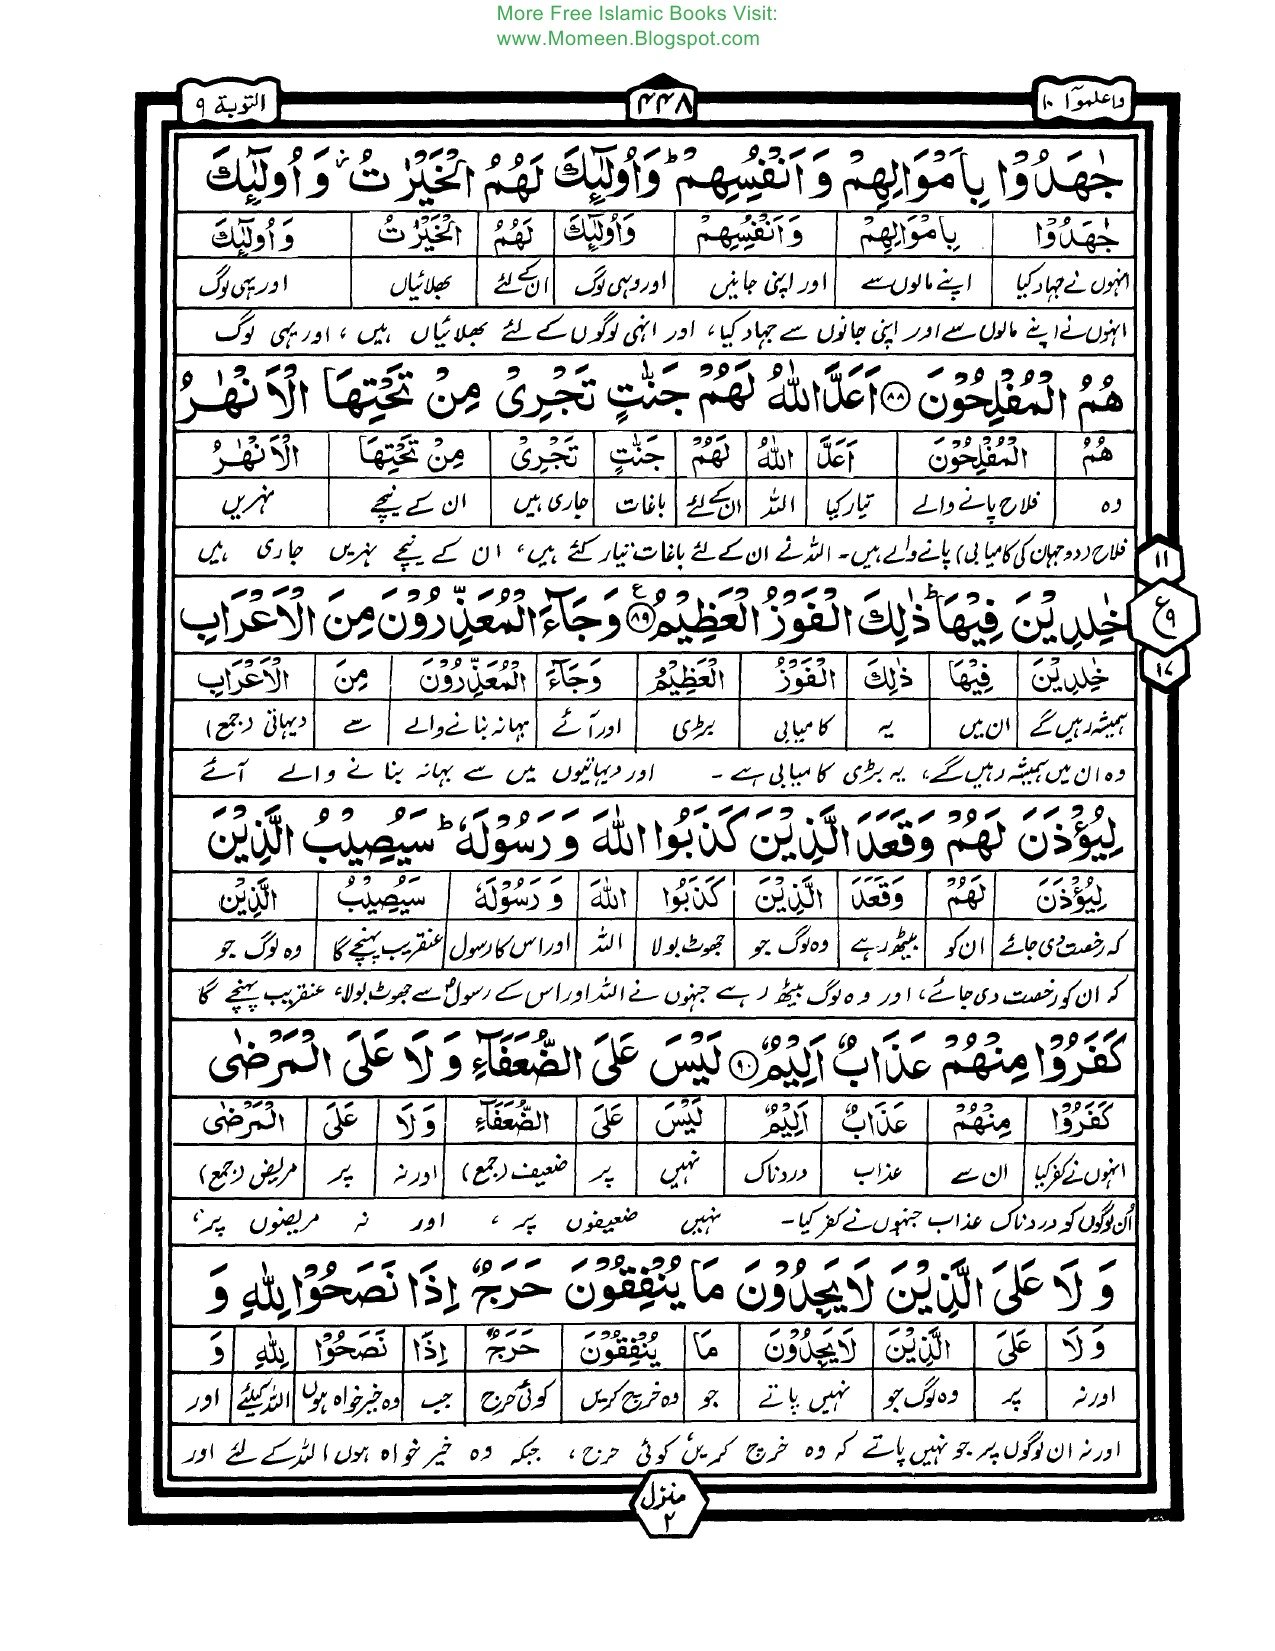 More Free Islamic Books Visit:
www.Momeen.Blogspot.com
واعلموٓا ۱۰ ۴۴۸ التوبة ۹
جٰهَدُوْا بِاَمْوَالِهِمْ وَاَنْفُسِهِمْ ؕ وَاُولٰٓئِكَ لَهُمُ الْخَيْرٰتُ ؗ وَاُولٰٓئِكَ
جٰهَدُوْا بِاَمْوَالِهِمْ وَاَنْفُسِهِمْ وَاُولٰٓئِكَ لَهُمُ الْخَيْرٰتُ وَاُولٰٓئِكَ
انہوں نے جہاد کیا اپنے مالوں سے اور اپنی جانیں اور وہی لوگ ان کے لئے بھلائیاں اور یہی لوگ
انہوں نے اپنے مالوں سے اور اپنی جانوں سے جہاد کیا، اور انہی لوگوں کے لئے بھلائیاں ہیں، اور یہی لوگ
هُمُ الْمُفْلِحُوْنَ ۸۸ اَعَدَّ اللّٰهُ لَهُمْ جَنّٰتٍ تَجْرِىْ مِنْ تَحْتِهَا الْاَنْهٰرُ
هُمُ الْمُفْلِحُوْنَ اَعَدَّ اللّٰهُ لَهُمْ جَنّٰتٍ تَجْرِىْ مِنْ تَحْتِهَا الْاَنْهٰرُ
وہ فلاح پانے والے تیار کیا اللہ ان کے لئے باغات جاری ہیں ان کے نیچے نہریں
فلاح (دو جہان کی کامیابی) پانے والے ہیں۔ اللہ نے ان کے لئے باغات تیار کئے ہیں، ان کے نیچے نہریں جاری ہیں
۱۱
خٰلِدِيْنَ فِيْهَا ؕ ذٰلِكَ الْفَوْزُ الْعَظِيْمُ ۸۹ ع وَجَآءَ الْمُعَذِّرُوْنَ مِنَ الْاَعْرَابِ
ع ۹
۱۷
خٰلِدِيْنَ فِيْهَا ذٰلِكَ الْفَوْزُ الْعَظِيْمُ وَجَآءَ الْمُعَذِّرُوْنَ مِنَ الْاَعْرَابِ
ہمیشہ رہیں گے ان میں یہ کامیابی بڑی اور آئے بہانہ بنانے والے سے دیہاتی (جمع)
وہ ان میں ہمیشہ رہیں گے، یہ بڑی کامیابی ہے۔ اور دیہاتیوں میں سے بہانہ بنانے والے آئے
لِيُؤْذَنَ لَهُمْ وَقَعَدَ الَّذِيْنَ كَذَبُوا اللّٰهَ وَرَسُوْلَهٗ ؕ سَيُصِيْبُ الَّذِيْنَ
لِيُؤْذَنَ لَهُمْ وَقَعَدَ الَّذِيْنَ كَذَبُوا اللّٰهَ وَرَسُوْلَهٗ سَيُصِيْبُ الَّذِيْنَ
کہ رخصت دی جائے ان کو بیٹھ رہے وہ لوگ جو جھوٹ بولا اللہ اور اس کا رسول عنقریب پہنچے گا وہ لوگ جو
کہ ان کو رخصت دی جائے، اور وہ لوگ بیٹھ رہے جنہوں نے اللہ اور اس کے رسول سے جھوٹ بولا، عنقریب پہنچے گا
كَفَرُوْا مِنْهُمْ عَذَابٌ اَلِيْمٌ ۹۰ لَيْسَ عَلَى الضُّعَفَآءِ وَلَا عَلَى الْمَرْضٰى
كَفَرُوْا مِنْهُمْ عَذَابٌ اَلِيْمٌ لَيْسَ عَلَى الضُّعَفَآءِ وَلَا عَلَى الْمَرْضٰى
انہوں نے کفر کیا ان سے عذاب دردناک نہیں پر ضعیف (جمع) اور نہ پر مریض (جمع)
اُن لوگوں کو دردناک عذاب جنہوں نے کفر کیا۔ نہیں ضعیفوں پر، اور نہ مریضوں پر،
وَلَا عَلَى الَّذِيْنَ لَا يَجِدُوْنَ مَا يُنْفِقُوْنَ حَرَجٌ اِذَا نَصَحُوْا لِلّٰهِ وَ
وَلَا عَلَى الَّذِيْنَ لَا يَجِدُوْنَ مَا يُنْفِقُوْنَ حَرَجٌ اِذَا نَصَحُوْا لِلّٰهِ وَ
اور نہ پر وہ لوگ جو نہیں پاتے جو وہ خرچ کریں کوئی حرج جب وہ خیر خواہ ہوں اللہ کیلئے اور
اور نہ ان لوگوں پر جو نہیں پاتے کہ وہ خرچ کریں کوئی حرج، جبکہ وہ خیر خواہ ہوں اللہ کے لئے اور
منزل ۲